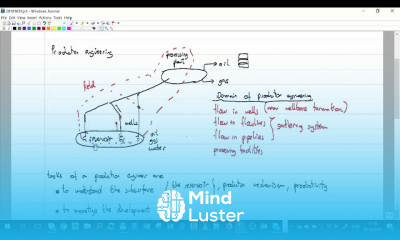 20191029.jnt - Windows Journal
File Edit View Insert Actions Tools Help
Production engineering
processing plant
oil
gas
field
wells
reservoir
oil
gas
water
Domain of production engineering
flow in wells (near wellbore formation)
flow in flowlines
gathering system
flow in pipelines
processing facilities
Mind
Luster
tasks of a production engineer are
to understand the subsurface / the reservoir, production mechanism, productivity
to the development